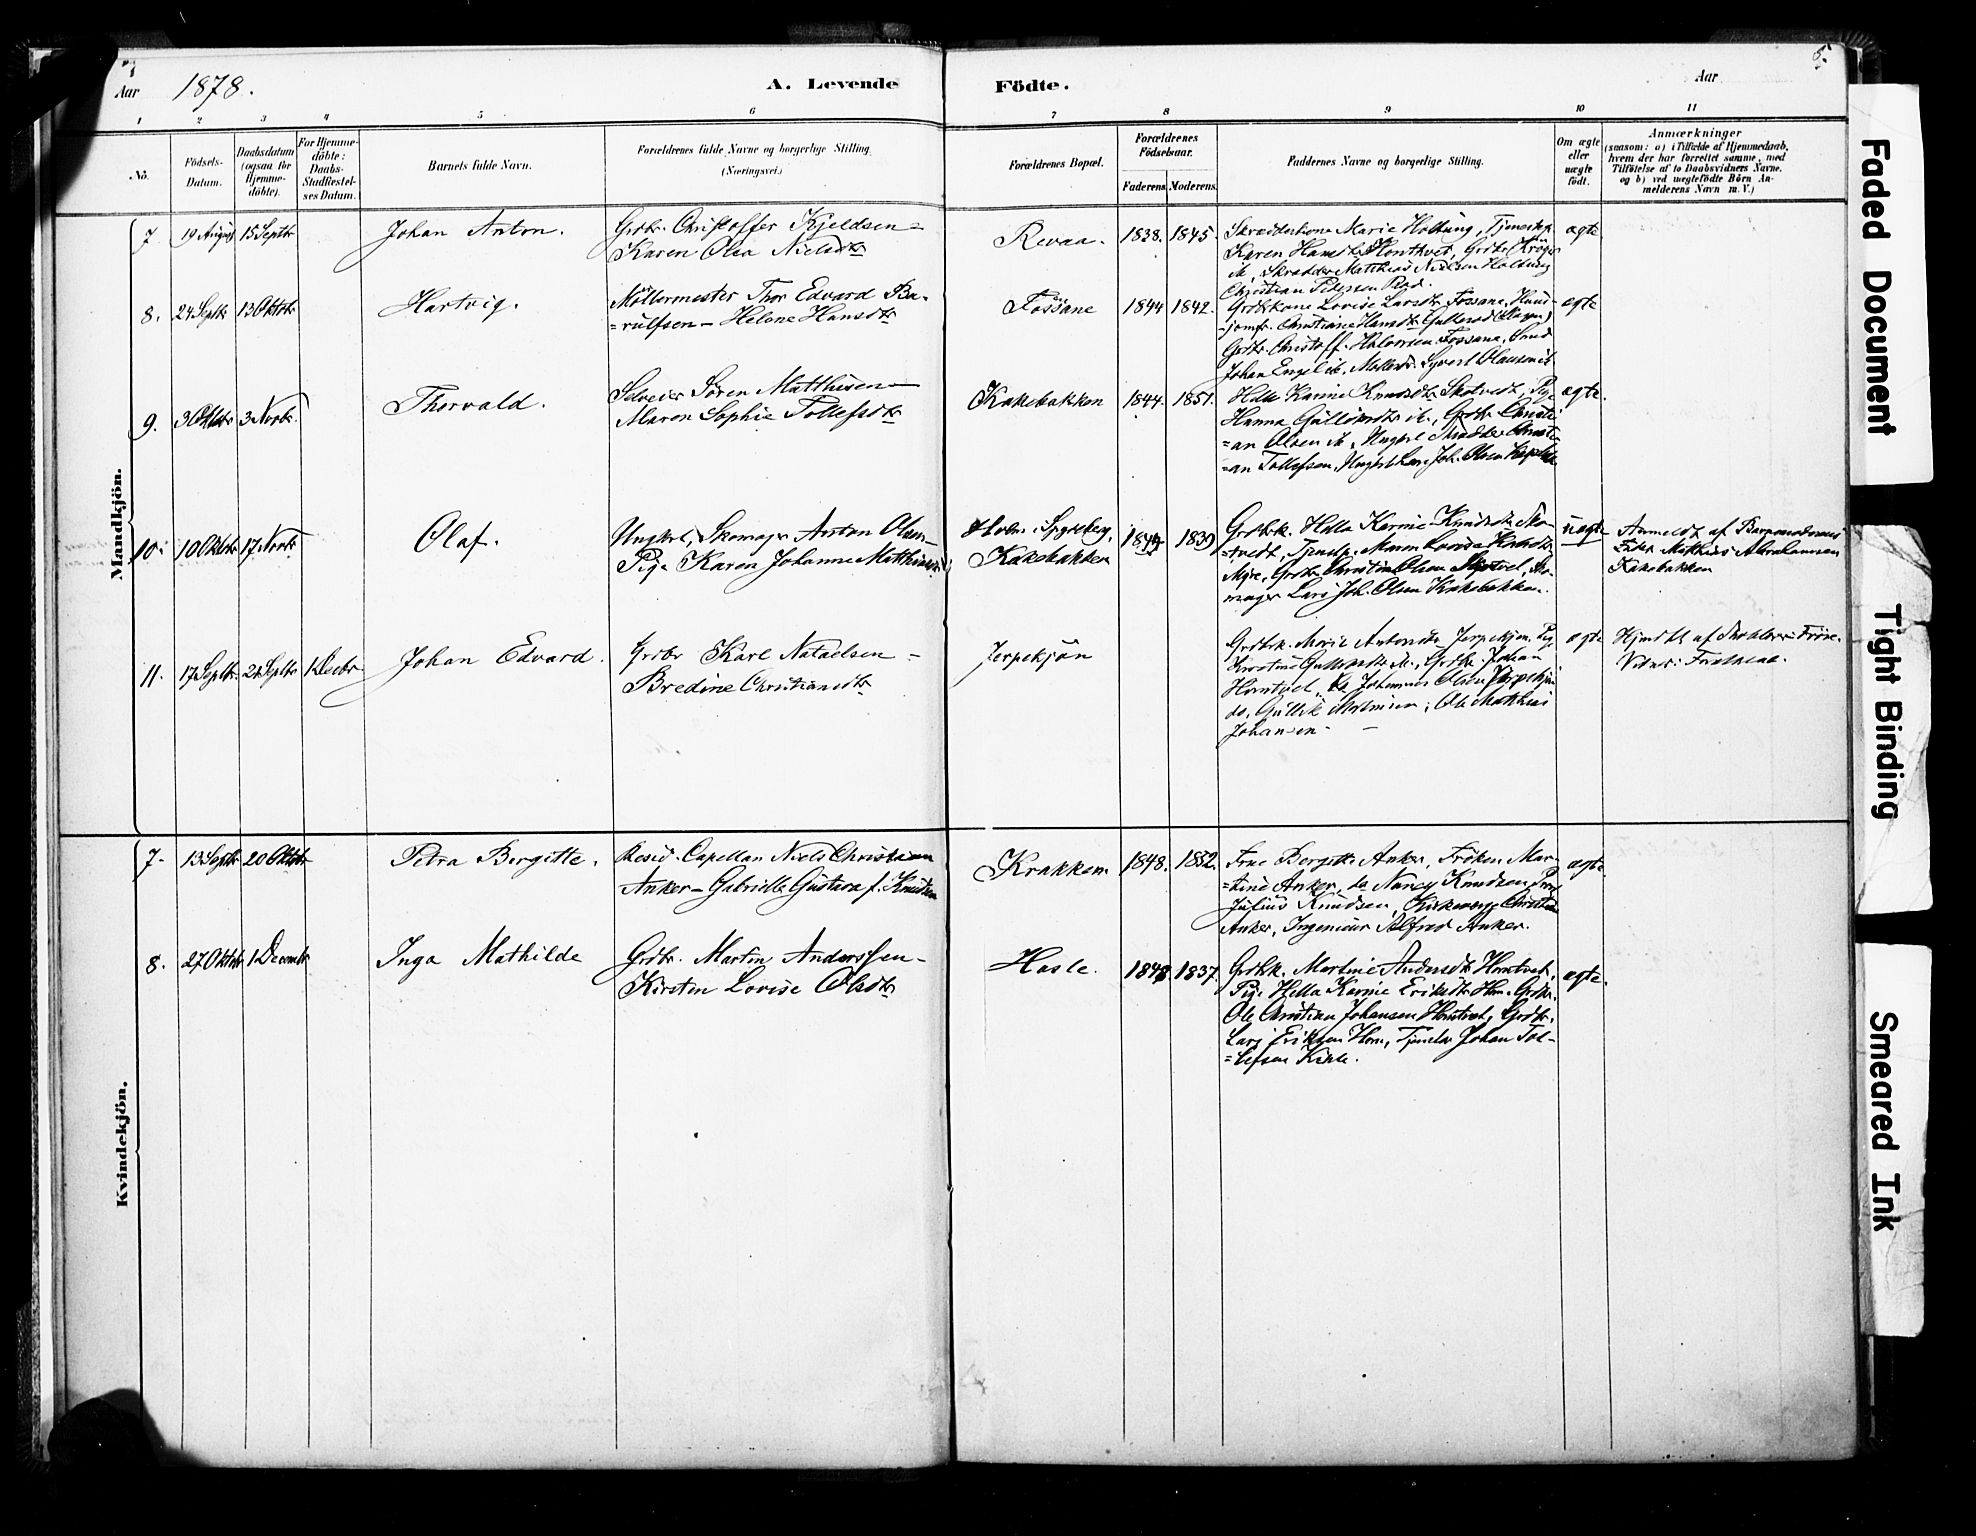 Aar 1878.
A. Levende Födte.
Aar
5.
1 2 3 4 5 6 7 8 9 10 11
No.
Födsels-Datum.
Daabsdatum (ogsaa for Hjemme-döbte).
For Hjemme-döbte: Daabs-Stadfæstel-ses Datum.
Barnets fulde Navn.
Forældrenes fulde Navne og borgerlige Stilling (Næringsvei.)
Forældrenes Bopæl.
Forældrenes Födselsaar.
Faderens Moderens
Faddernes Navne og borgerlige Stilling.
Om ægte eller uægte födt.
Anmærkninger
(saasom: a) i Tilfælde af Hjemmedaab,
hvem der har forrettet samme, med
Tilföielse af to Daabsvidners Navne.
og b) ved uægtefödte Börn An-
melderens Navn m. V.)
Mandkjön.
7. 19 August 15 Septbr Johan Anton. Grdbr. Christoffer Kjeldsen =
Karen Olea Nielsdtr
Revaa. 1838. 1845. Marie Holtung, Tjenestep.
Karen Hansdtr Hontvet, Grdbr
Skrædder Matthias Nielsen Holtung
Christian Pedersen
ægte
8. 24 Septbr 13 Oktbr Hartvig. Möllermester Thor Edvard Ba-
=rulfsen - Helene Hansdtr
Fossane 1844 1842. Grdbrkone Lovise Larsdtr Fossane,
-jomfr. Christiane Hansdtr
Grdbr. Christoff. Halvorsen Fossane,
Johan Engel
ægte
9. 3 Oktbr 3 Novbr. Thorvald. Selveier Sören Matthisen -
Maren Sophie Tollefsdtr
Kakebakken 1844. 1851. Helle Karine Knudsdtr Skotvedt, Pige
Hanna Gullovsdtr ib., Grdbr Christi
=an Olsen ib, Ungkarl Skrædder Christi
=an Tollefsen, Ungkarl Lars Joh. Olsen
ægte.
10. 10 Oktbr 17 Novbr Olaf. Ungkarl, Skomager Anton Olsen-
Pige Karen Johanne Matthisdtr
Holm i Spydeberg,
Kakebakken
1849 1839 Grdbrk. Hella Karine Knudsdtr Sko-
=tvedt, Tjenestp. Maren Lovise
Myre, Grdbr Christian Olsen
mager Lars Joh. Olsen Kakebakken.
uægte Anmeldt af Barnemoderens
Fader Matthias Abrahamsen
Kakebakken
11. 17 Septbr. 21 Septbr 1 Decbr Johan Edvard. Grdbr Karl Nataelsen -
Bredine Christiansdtr
Jerpekjön
Grdbrk. Marie Antonsdtr Jerpekjön. Pige
Kirstine Gullovsdtr ib., Grdbr. Johan
Horntvet, Johannes Olsen Jerpekjön
do, Gullik ; Ole Matthias
Johansen -
ægte Hjmdbt af
Vidner:
Kvindekjön.
7. 13 Septbr 20 Oktbr Petra Bergitte. Resid. Capellan Niels Christian
Anker - Gabrielle Gustava f. Knudsen
Krakkem 1848. 1852. Frue Bergitte Anker, Fröken Mar-
=tine Anker, do Nancy Knudsen,
Julius Knudsen, Kirkeværge Christian
Anker, Ingenieur Alfred Anker.
ægte
8. 27 Oktbr 1 Decembr Inga Mathilde Grdbr. Martin Anderssen -
Kirsten Lovise Olsdtr
Hasle. 1848. 1837. Grdbrk. Martine Andersdtr Horntvet,
Pige Hella Karine Eriksdtr Horn. Grdbr.
Ole Christian Johansen Horntvet, Grdbr.
Lars Eriksen Horn, Johan Tol-
=lefsen
ægte.
Faded Document
Tight Binding
Smeared Ink